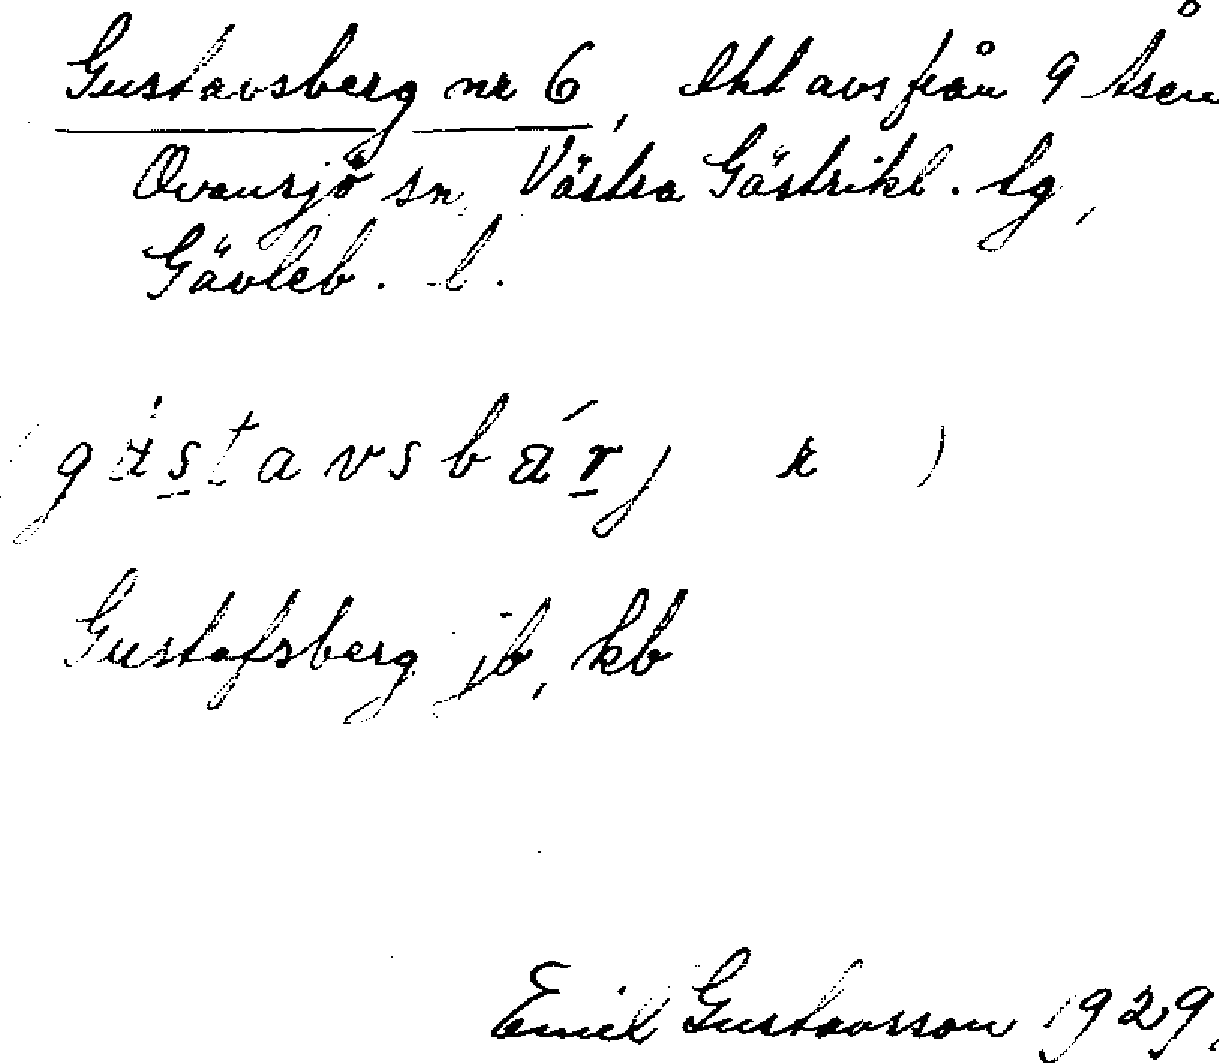 Gustavsberg nr 6, lht avs från 9 Åsen
Ovansjö sn, Västra Gästrikl. tg,
Gävleb. l.
(gústavsbárj r )
Gustafsberg jb, kb
Emil Gustavsson 1929.